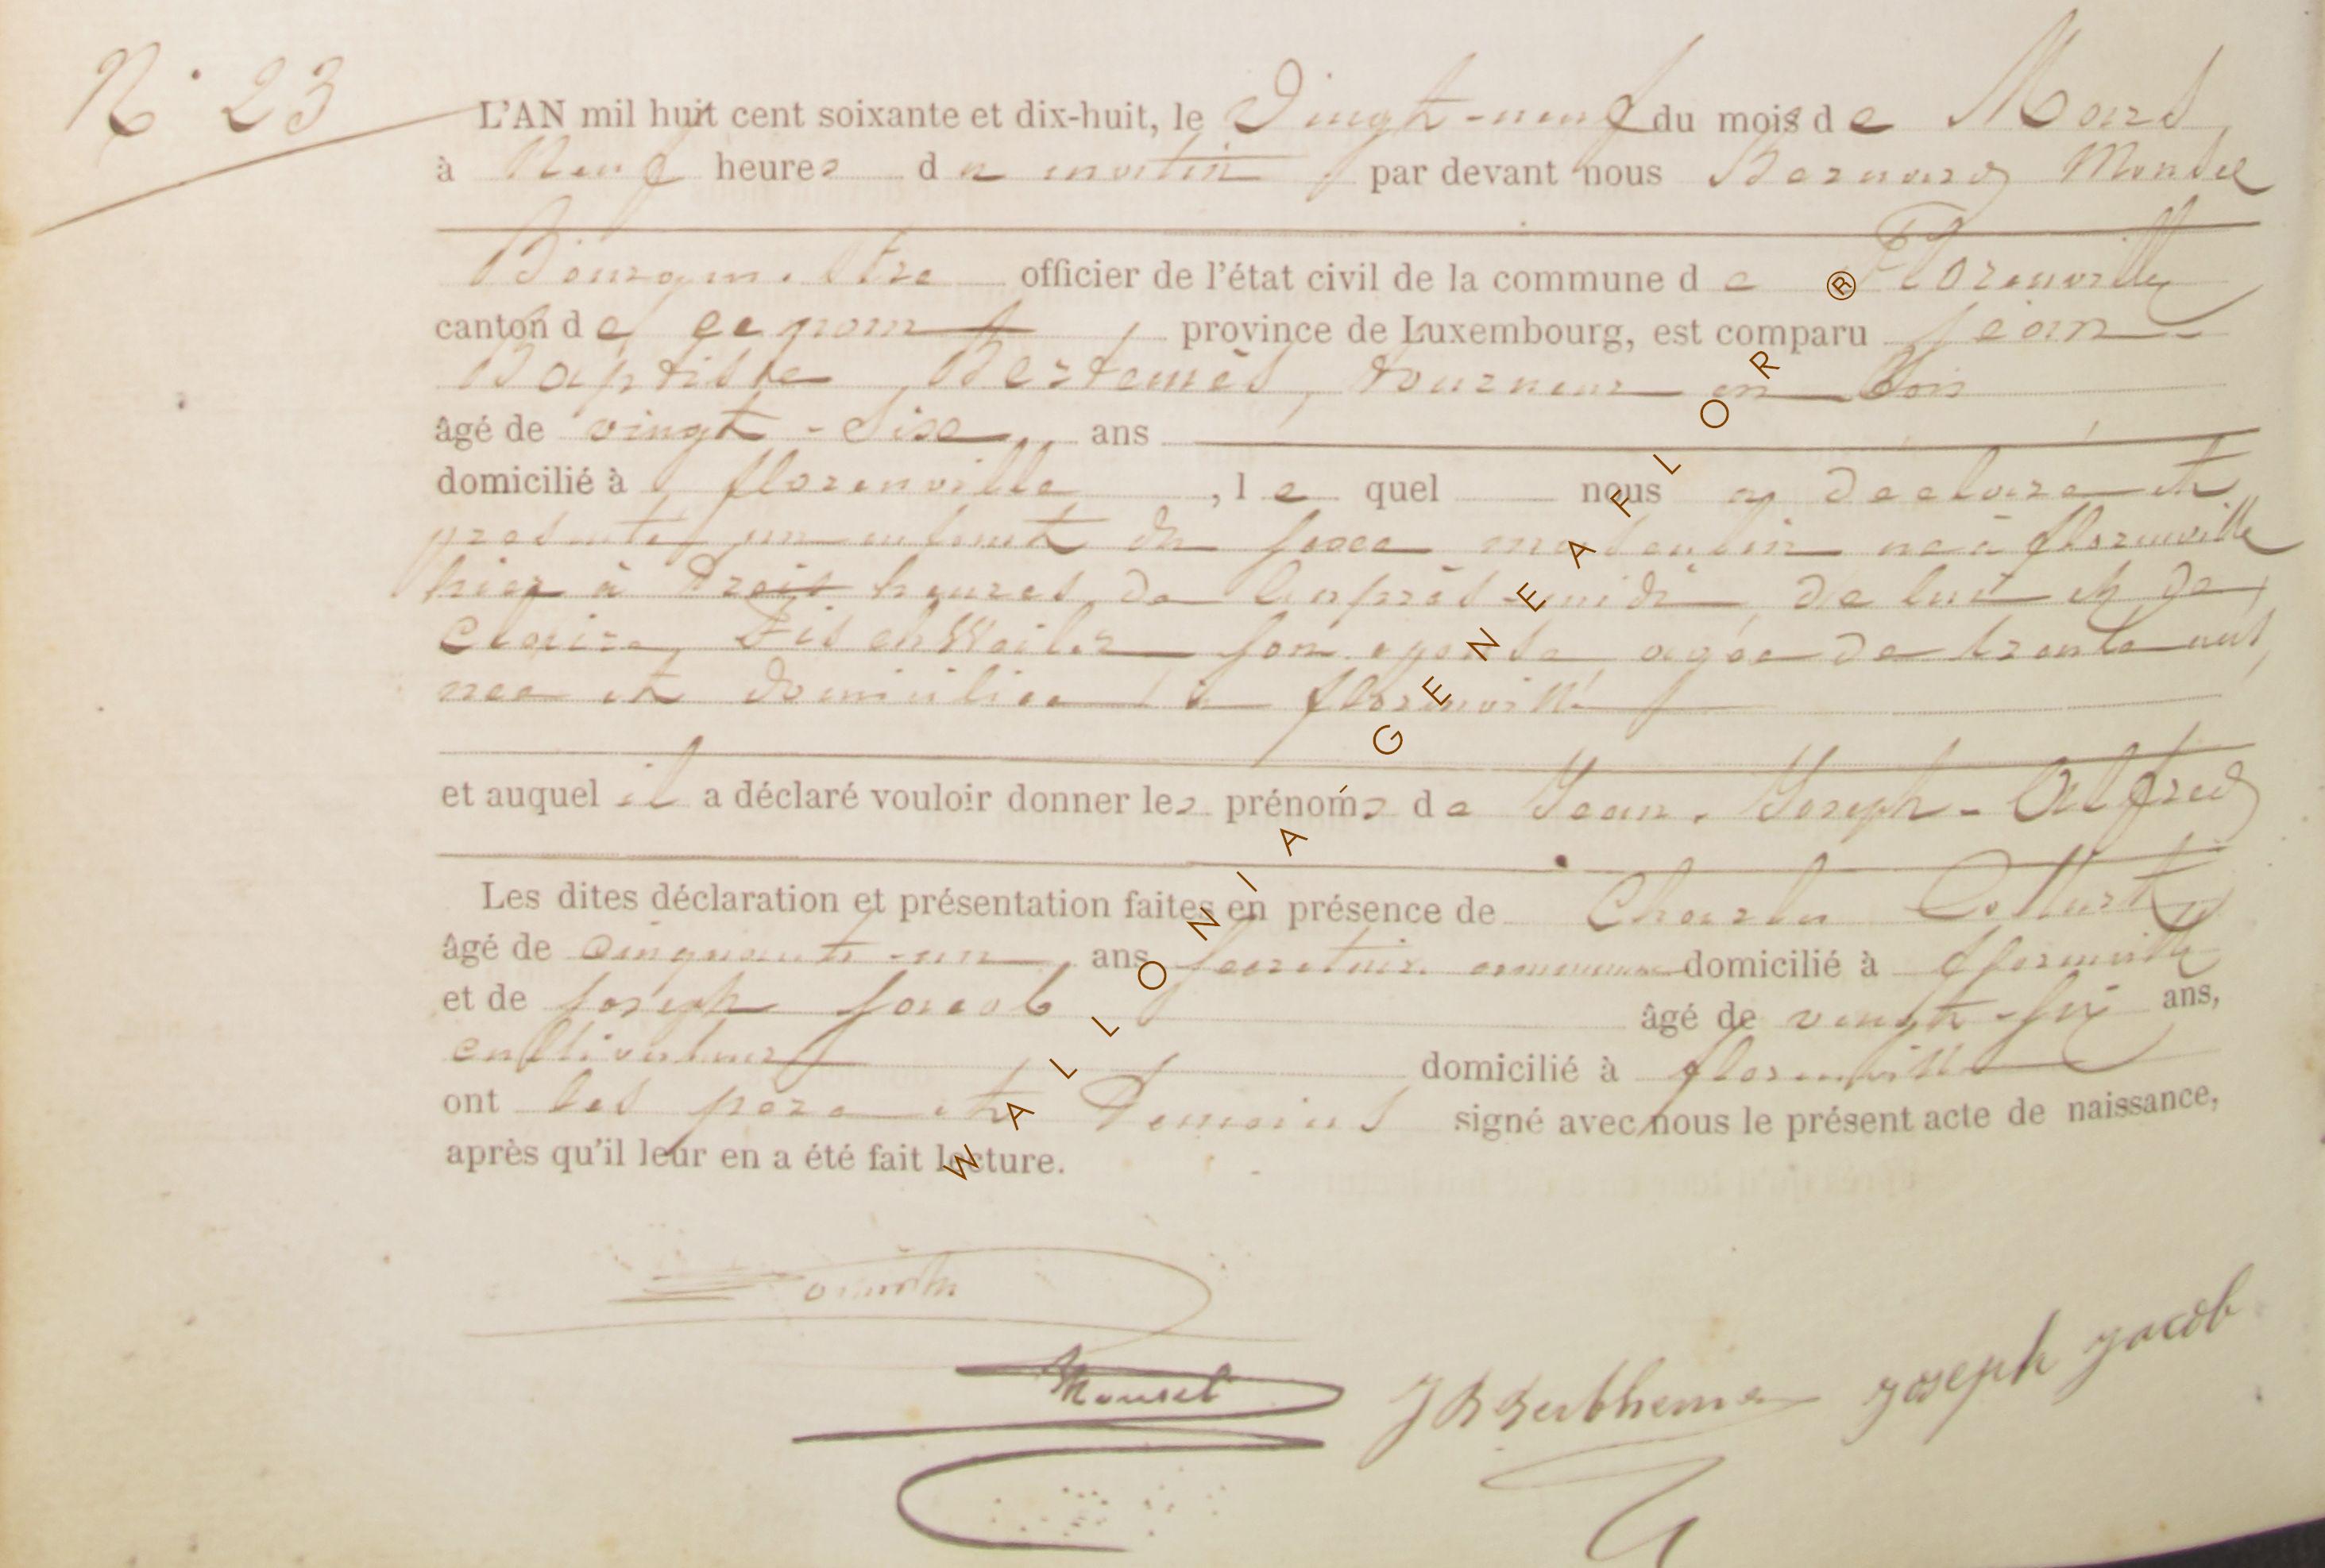 N° 23
L'AN mil huit cent soixante et dix-huit, le Vingt-neuf du mois de Mars,
à Neuf heures du matin par devant nous Bernard Monsel
Bourgmestre officier de l'état civil de la commune de Florenville
canton de ce nom, province de Luxembourg, est comparu Jean-
Baptiste Bertemès, tourneur en bois
âgé de vingt-six ans
domicilié à florenville, le quel nous a déclaré et
présenté un enfant du sexe masculin né à florenville
hier à trois heures de l'après-midi, de lui et de
Claire Fischweiler son épouse agée de trente ans,
née et domiciliée à florenville
et auquel il a déclaré vouloir donner les prénoms de Jean-Joseph-Alfred
Les dites déclaration et présentation faites en présence de Charles
âgé de cinquante-un ans secrétaire communal domicilié à florenville
et de Joseph Jacob âgé de vingt-six ans,
cultivateur domicilié à florenville
ont les père et témoins signé avec nous le présent acte de naissance,
après qu'il leur en a été fait lecture.
Monsel
Joseph Jacob
WALLONIA-GENEAFLOR ®